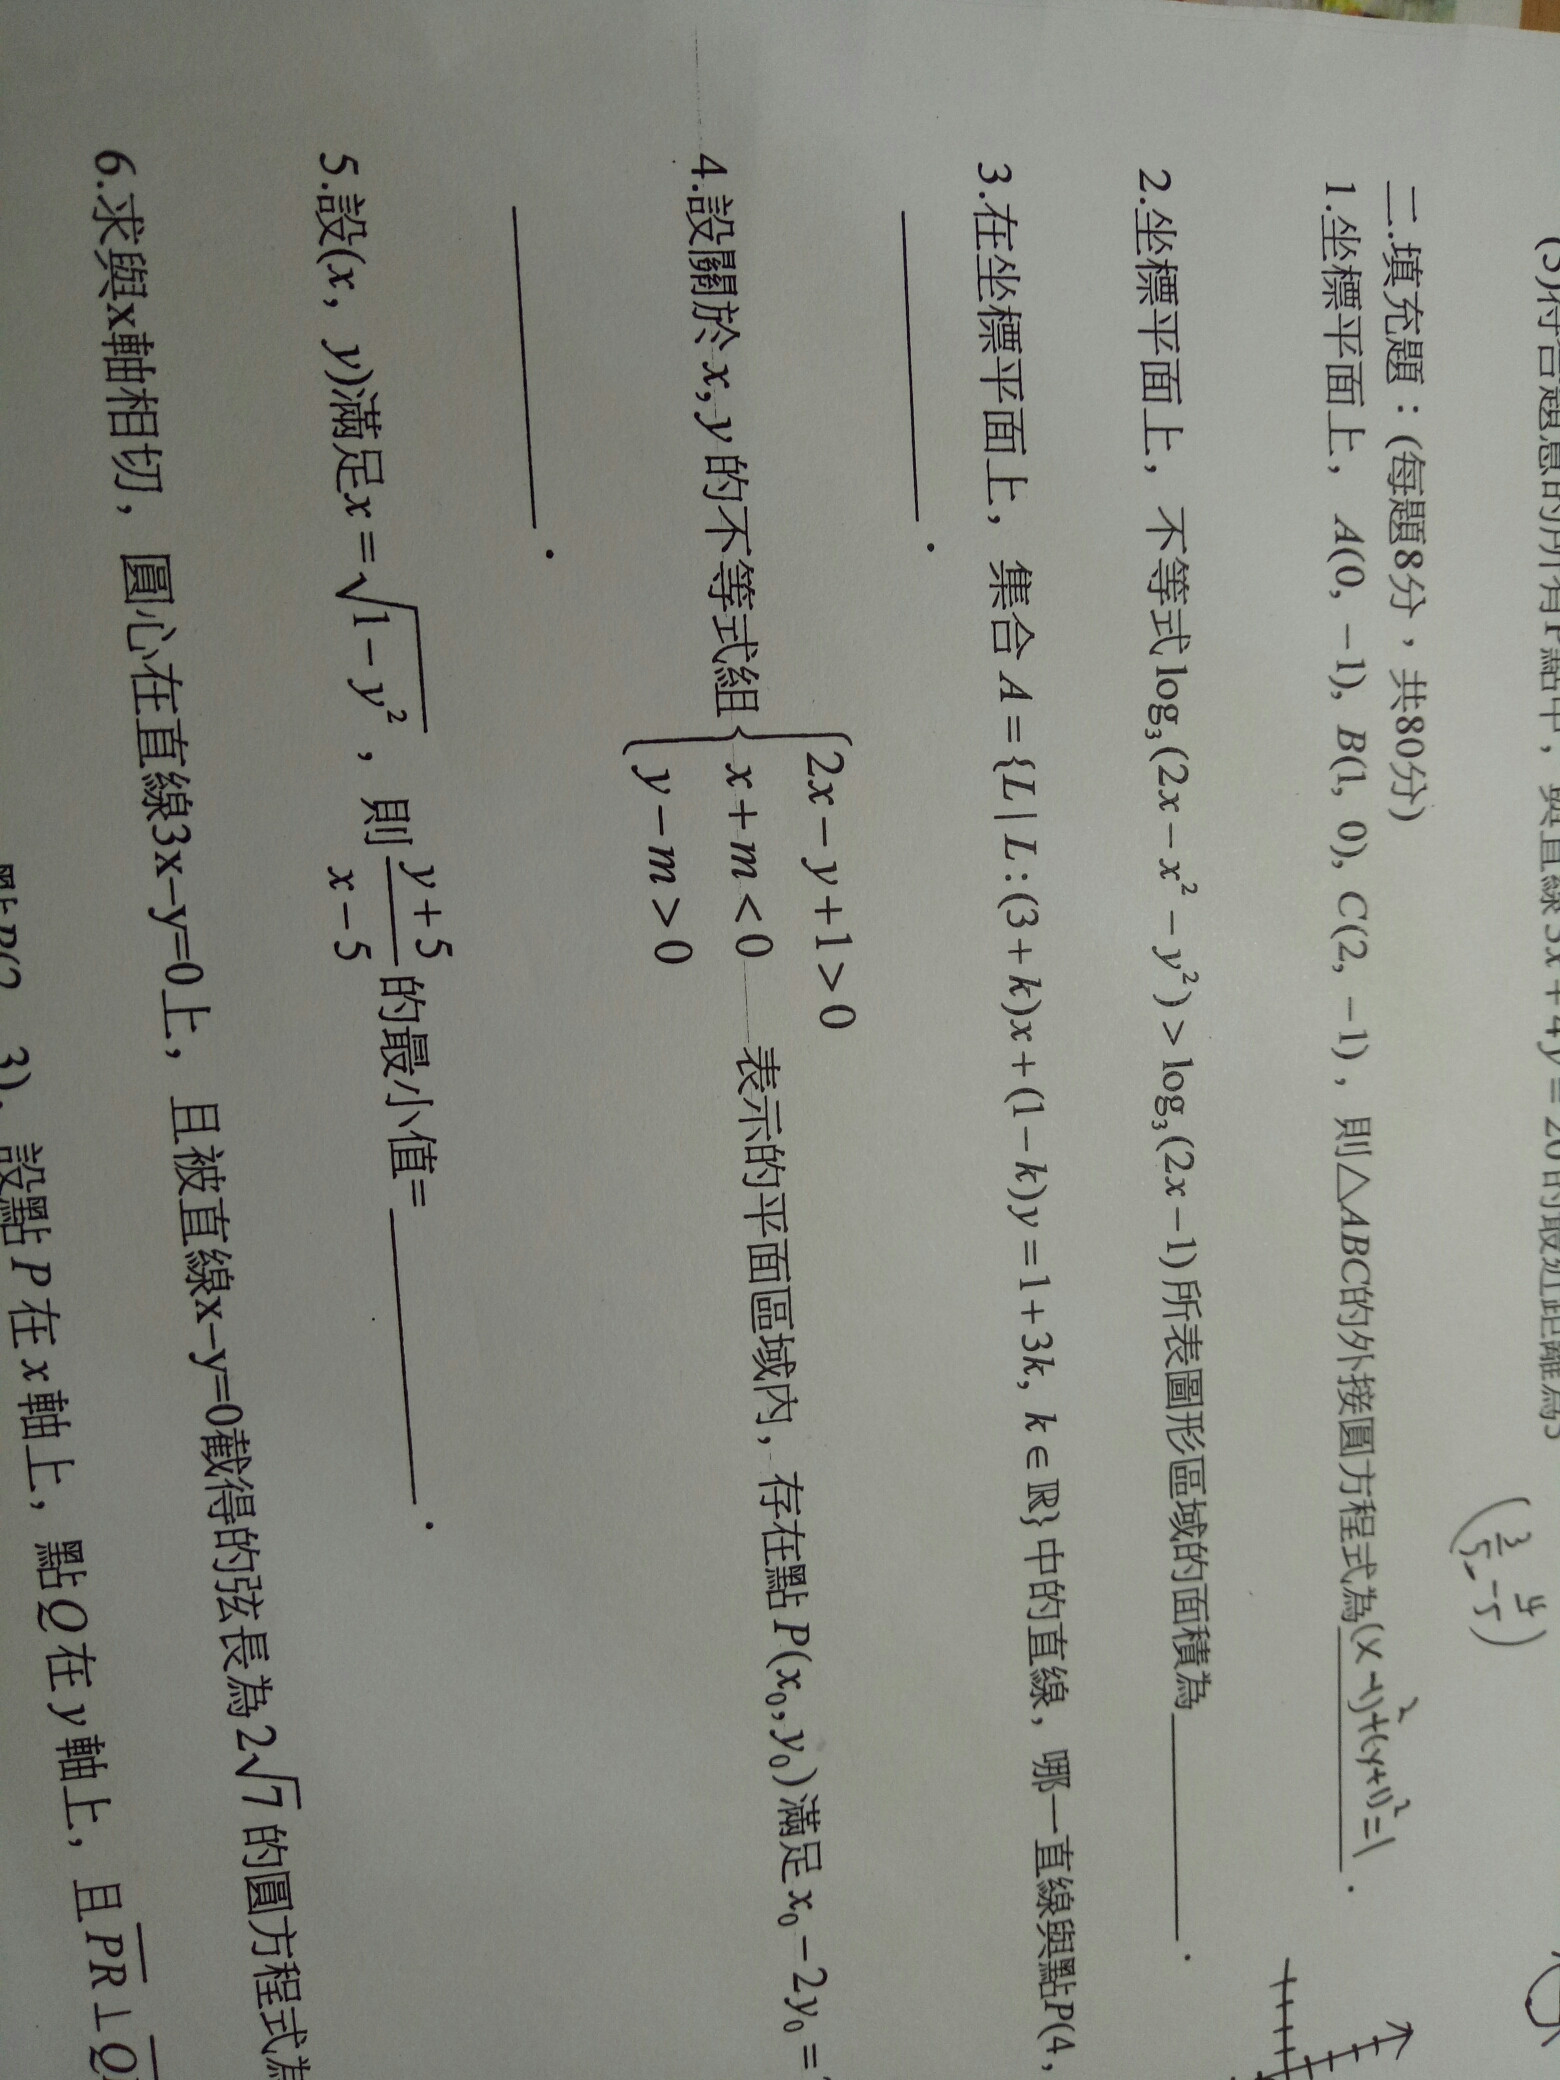 (3)符合題意的所有P點中，與直線3x+4y=20的最近距離為3
(3/5, -4/5)
二.填充題：(每題8分，共80分)
1.坐標平面上，A(0, -1), B(1, 0), C(2, -1)，則△ABC的外接圓方程式為(x-1)²+(y+1)²=1.
2.坐標平面上，不等式log₃(2x-x²-y²)>log₃(2x-1)所表圖形區域的面積為________.
3.在坐標平面上，集合A={L|L:(3+k)x+(1-k)y=1+3k, k∈ℝ}中的直線，哪一直線與點P(4,
________.
4.設關於x,y的不等式組{2x-y+1>0
x+m<0 表示的平面區域內，存在點P(x₀,y₀)滿足x₀-2y₀=
y-m>0
________.
5.設(x，y)滿足x=√(1-y²)，則(y+5)/(x-5)的最小值=________.
6.求與x軸相切，圓心在直線3x-y=0上，且被直線x-y=0截得的弦長為2√7的圓方程式為
3)，設點P在x軸上，點Q在y軸上，且PR⊥Q